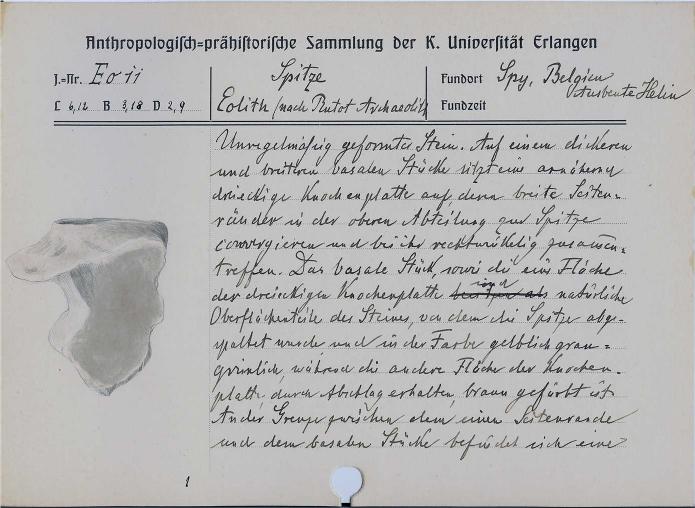 Anthropologisch=prähistorische Sammlung der K. Universität Erlangen
J.=Nr. Eo 11
Spitze
Fundort Spy, Belgien
Ausbeute Helin
L 6,12 B 3,18 D 2,9
Eolith (nach Rutot Archaeolith
Fundzeit
Unregelmäßig geformter Stein. Auf einem dickeren
und breiteren basalen Stücke sitzt eine annähernd
dreieckige Knochenplatte auf, deren breite Seiten=
ränder in der oberen Abteilung zur Spitze
convergieren und bei ihr rechtwinkelig zusammen=
treffen. Das basale Stück, sowie die eine Fläche
der dreieckigen Knochenplatte sind natürliche
Oberflächenteile des Steines, von dem die Spitze abge=
spaltet wurde und in der Farbe gelblich grau=
grünlich, während die andere Fläche der Knochen=
platte, durch Abschlag erhalten, braun gefärbt ist.
An der Grenze zwischen dem einen Seitenrande
und dem basalen Stücke befindet sich eine
1